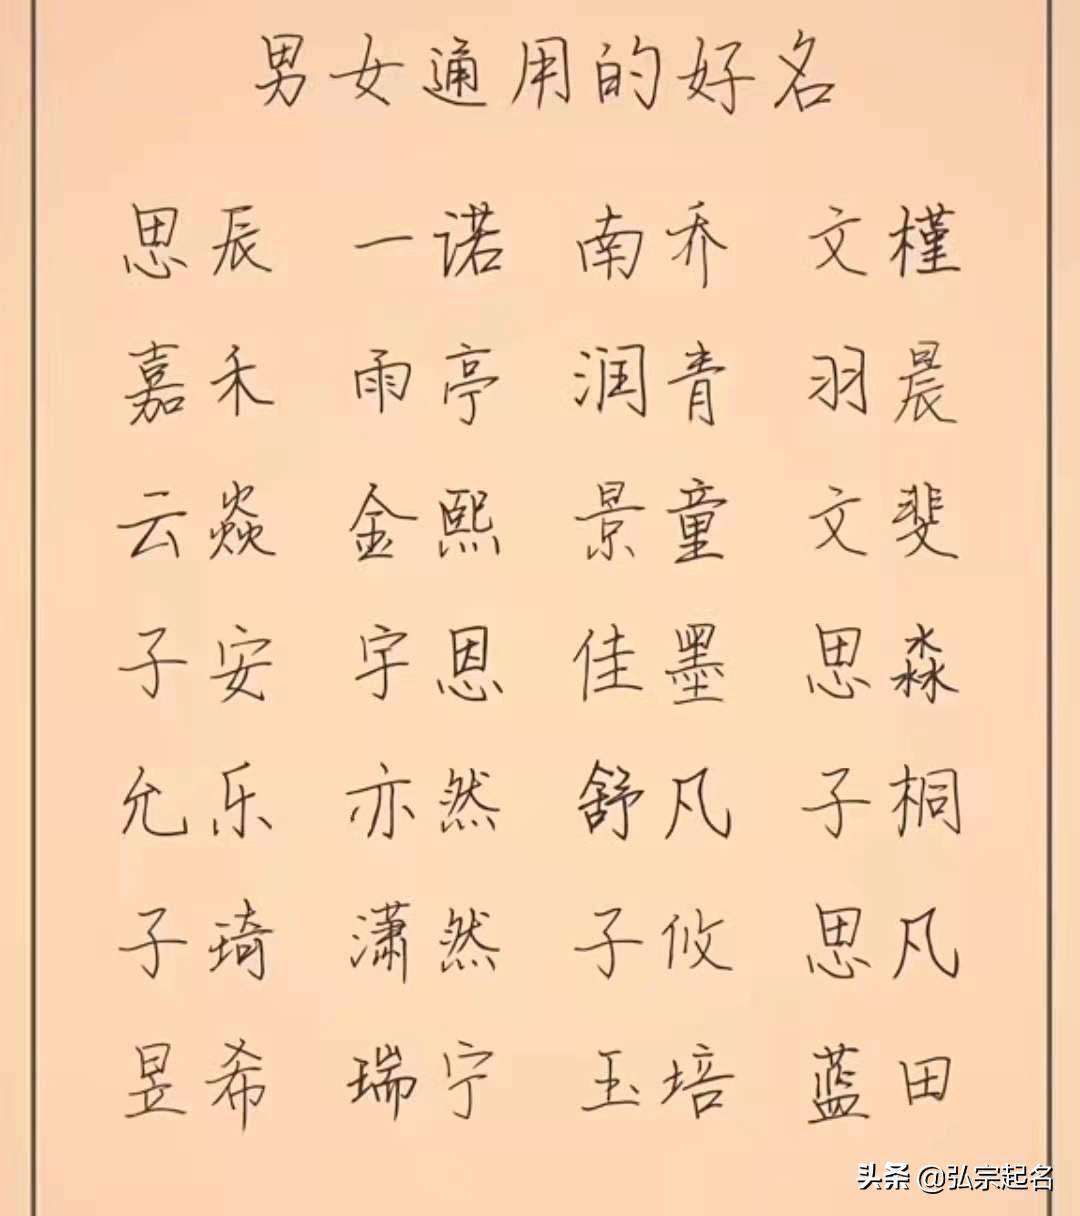 男女通用的好名
思辰 一诺 南乔 文槿
嘉禾 雨亭 润青 羽晨
云焱 金熙 景童 文斐
子安 宇恩 佳墨 思淼
允乐 亦然 舒凡 子桐
子琦 潇然 子攸 思凡
昱希 瑞宁 玉培 蓝田
头条 @弘宗起名